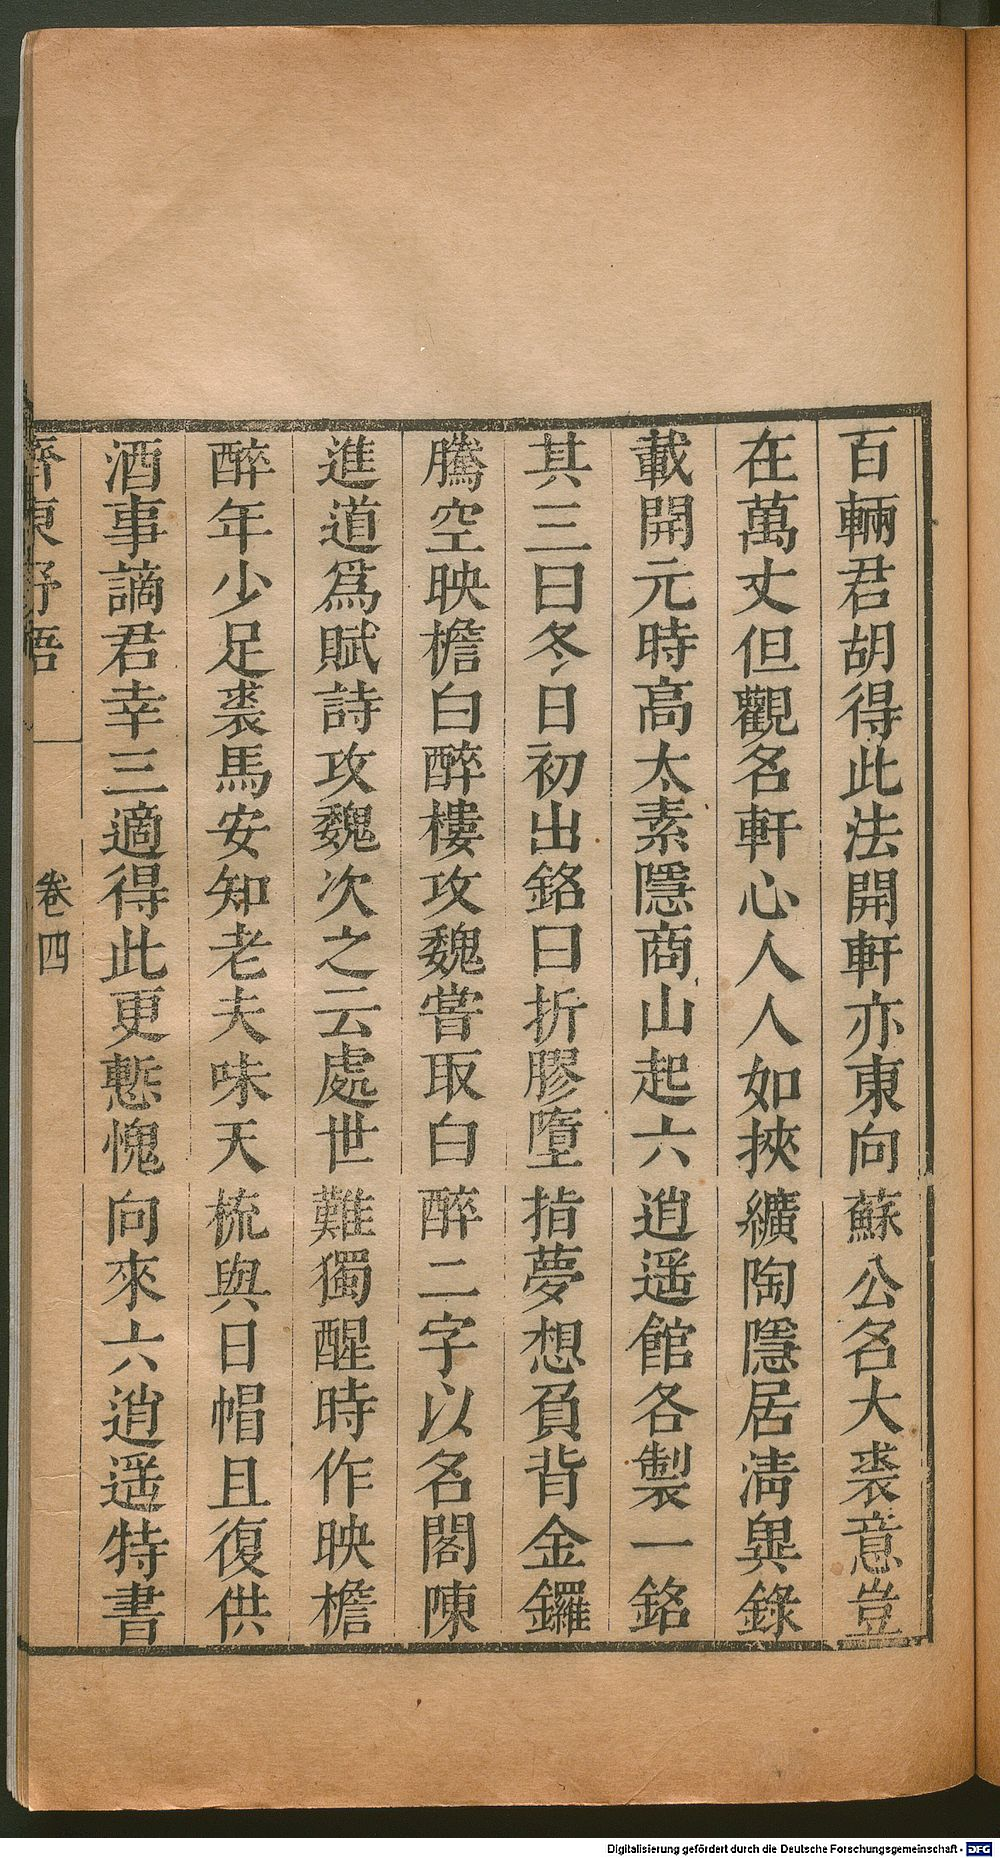 百輛君胡得此法開軒亦東向蘇公名大裘意豈
在萬丈但觀名軒心人人如挾纊陶隱居淸異錄
載開元時高太素隱商山起六逍遥館各製一銘
其三曰冬日初出銘曰折膠墮指夢想負背金鑼
騰空映檐白醉樓攻魏嘗取白醉二字以名閣陳
進道爲賦詩攻魏次之云處世難獨醒時作映檐
醉年少足裘馬安知老夫味天梳與日帽且復供
酒事謫君幸三適得此更慙愧向來六逍遥特書
齊東野語
卷四
Digitalisierung gefördert durch die Deutsche Forschungsgemeinschaft - DFG